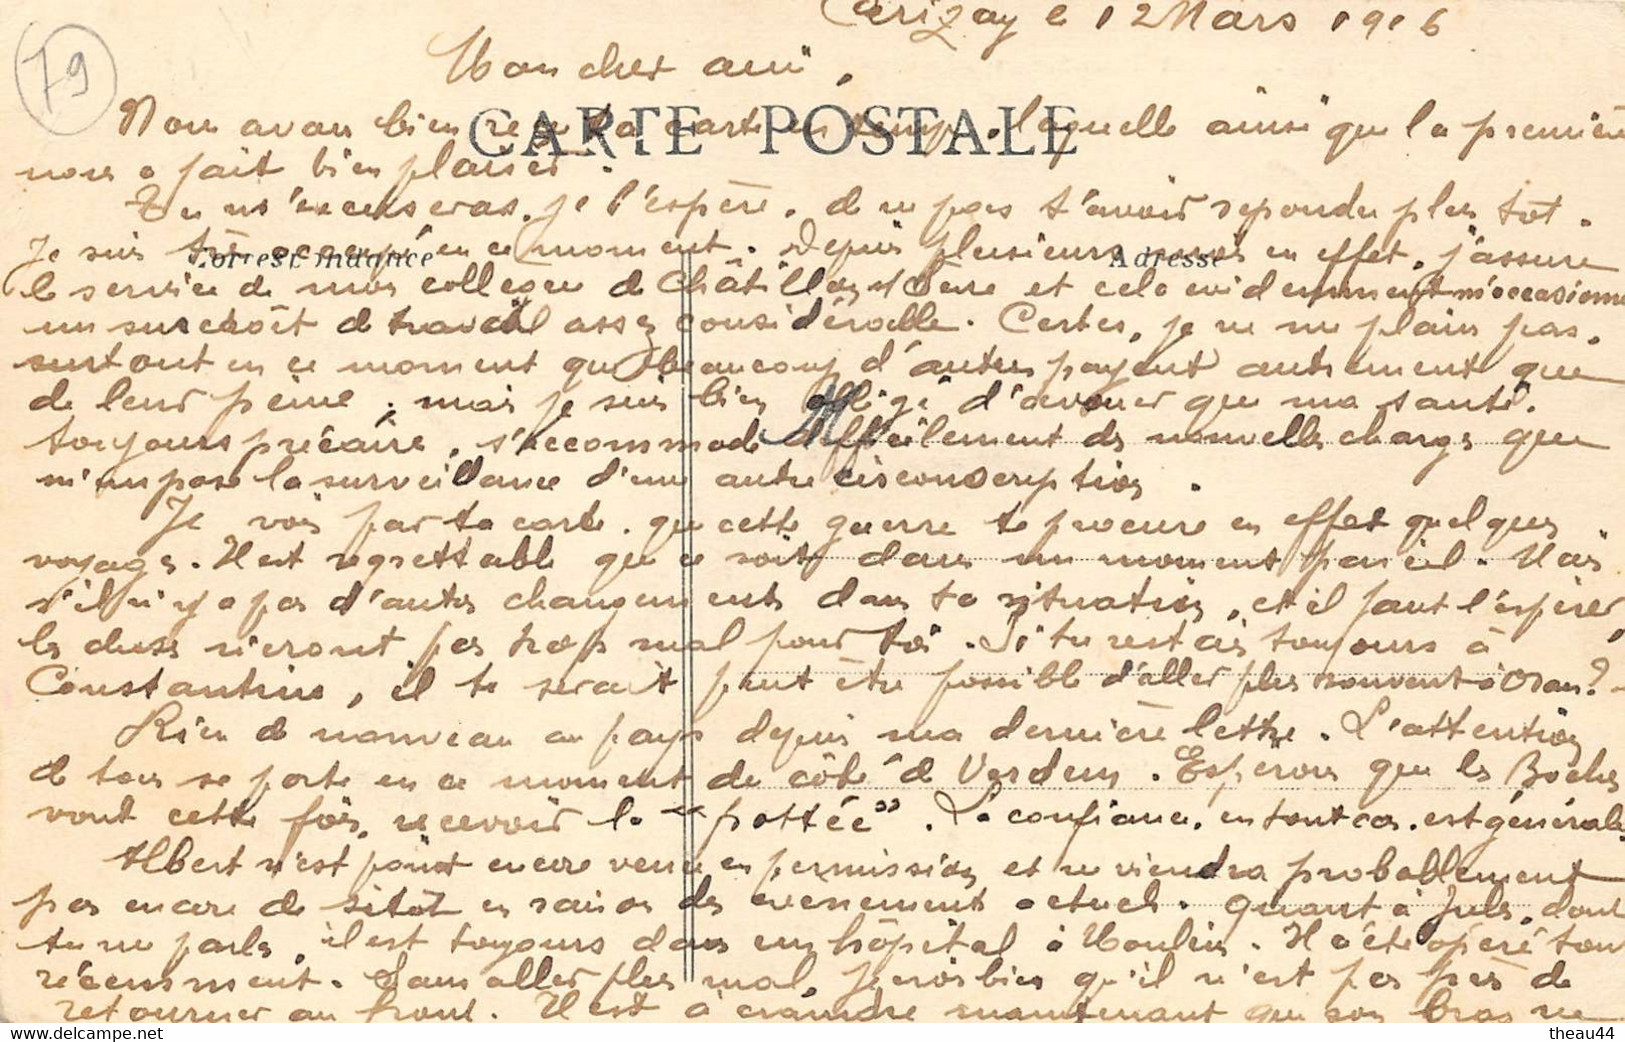 Cerizay le 12 Mars 1916
79
Mon cher ami,
CARTE POSTALE
Nous avons bien reçu ta carte en temps, laquelle ainsi que la première
nous a fait bien plaisir.
Tu m'excuseras, je l'espère, de ne pas t'avoir répondu plus tôt.
Correspondance
Adresse
Je suis très occupé en ce moment. Depuis plusieurs mois en effet, j'assure
le service de mon collègue de Châtillon s/ Sèvre et cela évidemment m'occasionne
un surcroît de travail assez considérable. Certes, je ne me plains pas,
surtout en ce moment que beaucoup d'autres payent autrement que
de leur peine ; mais je suis bien obligé d'avouer que ma santé,
toujours précaire, s'accommode difficilement des nouvelles charges que
m'impose la surveillance d'une autre circonscription.
Je vois par ta carte, que cette guerre te procure en effet quelques
voyages. Il est regrettable que ce soit dans un moment pareil. Mais
s'il n'y a pas d'autres changements dans ta situation, et il faut l'espérer,
les choses n'iront pas trop mal pour toi. Si tu restais toujours à
Constantine, il te serait peut être possible d'aller plus souvent à Oran ?
Rien de nouveau au pays depuis ma dernière lettre. L'attention
de tous se porte en ce moment du côté de Verdun. Esperons que les Boches
vont cette fois, recevoir la "pottée". La confiance, en tout cas, est générale.
Albert n'est point encore venu en permission et ne viendra probablement
pas encore de sitôt en raison des évènements actuels. Quant à Jules, dont
tu me parles, il est toujours dans un hôpital à Moulins. Il a été opéré tout
récemment. Sans aller plus mal, je crois bien qu'il n'est pas près de
retourner au front. Il est à craindre maintenant que son bras ne
www.delcampe.net
theau44